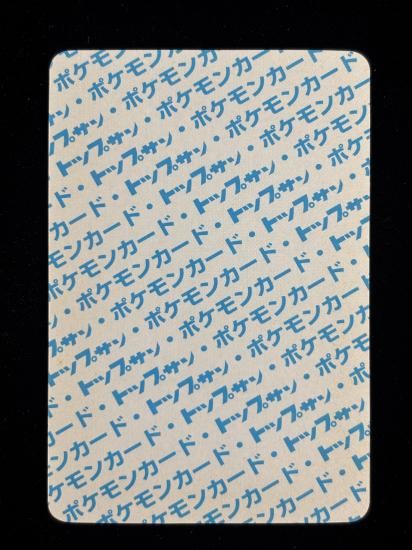 ポケモンカード
サン・ポケモンカード
トップサン・ポケモンカード
・トップサン・ポケモンカード
ード・トップサン・ポケモンカード
カード・トップサン・ポケモン
ンカード・トップサン・ポケ
モンカード・トップサン・
ポケモンカード・トップサン
・ポケモンカード・トップ
サン・ポケモンカード・
トップサン・ポケモンカード
・トップサン・ポケモンカード
ード・トップサン・ポケモンカード
カード・トップサン・ポケモン
ンカード・トップサン・ポケ
モンカード・トップサン・
ポケモンカード・トップサン
ポケモンカード・トップ
ポケモンカード